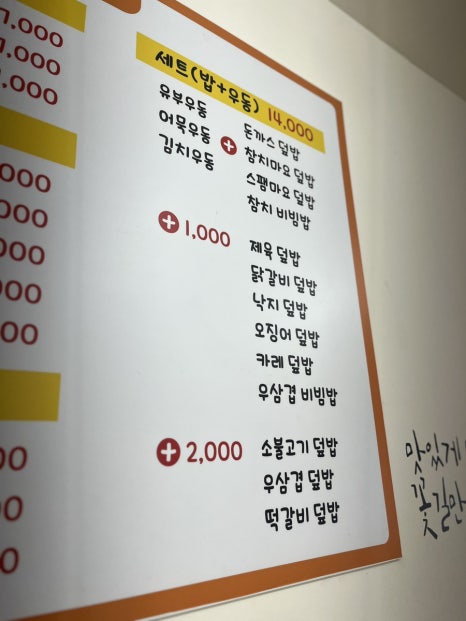 7,000
7,000
,000
000
000
000
000
00
00
00
0
세트(밥+우동) 14,000
유부우동
어묵우동
김치우동
+
돈까스 덮밥
참치마요 덮밥
스팸마요 덮밥
참치 비빔밥
+ 1,000
제육 덮밥
닭갈비 덮밥
낙지 덮밥
오징어 덮밥
카레 덮밥
우삼겹 비빔밥
+ 2,000
소불고기 덮밥
우삼겹 덮밥
떡갈비 덮밥
맛있게
꽃길만